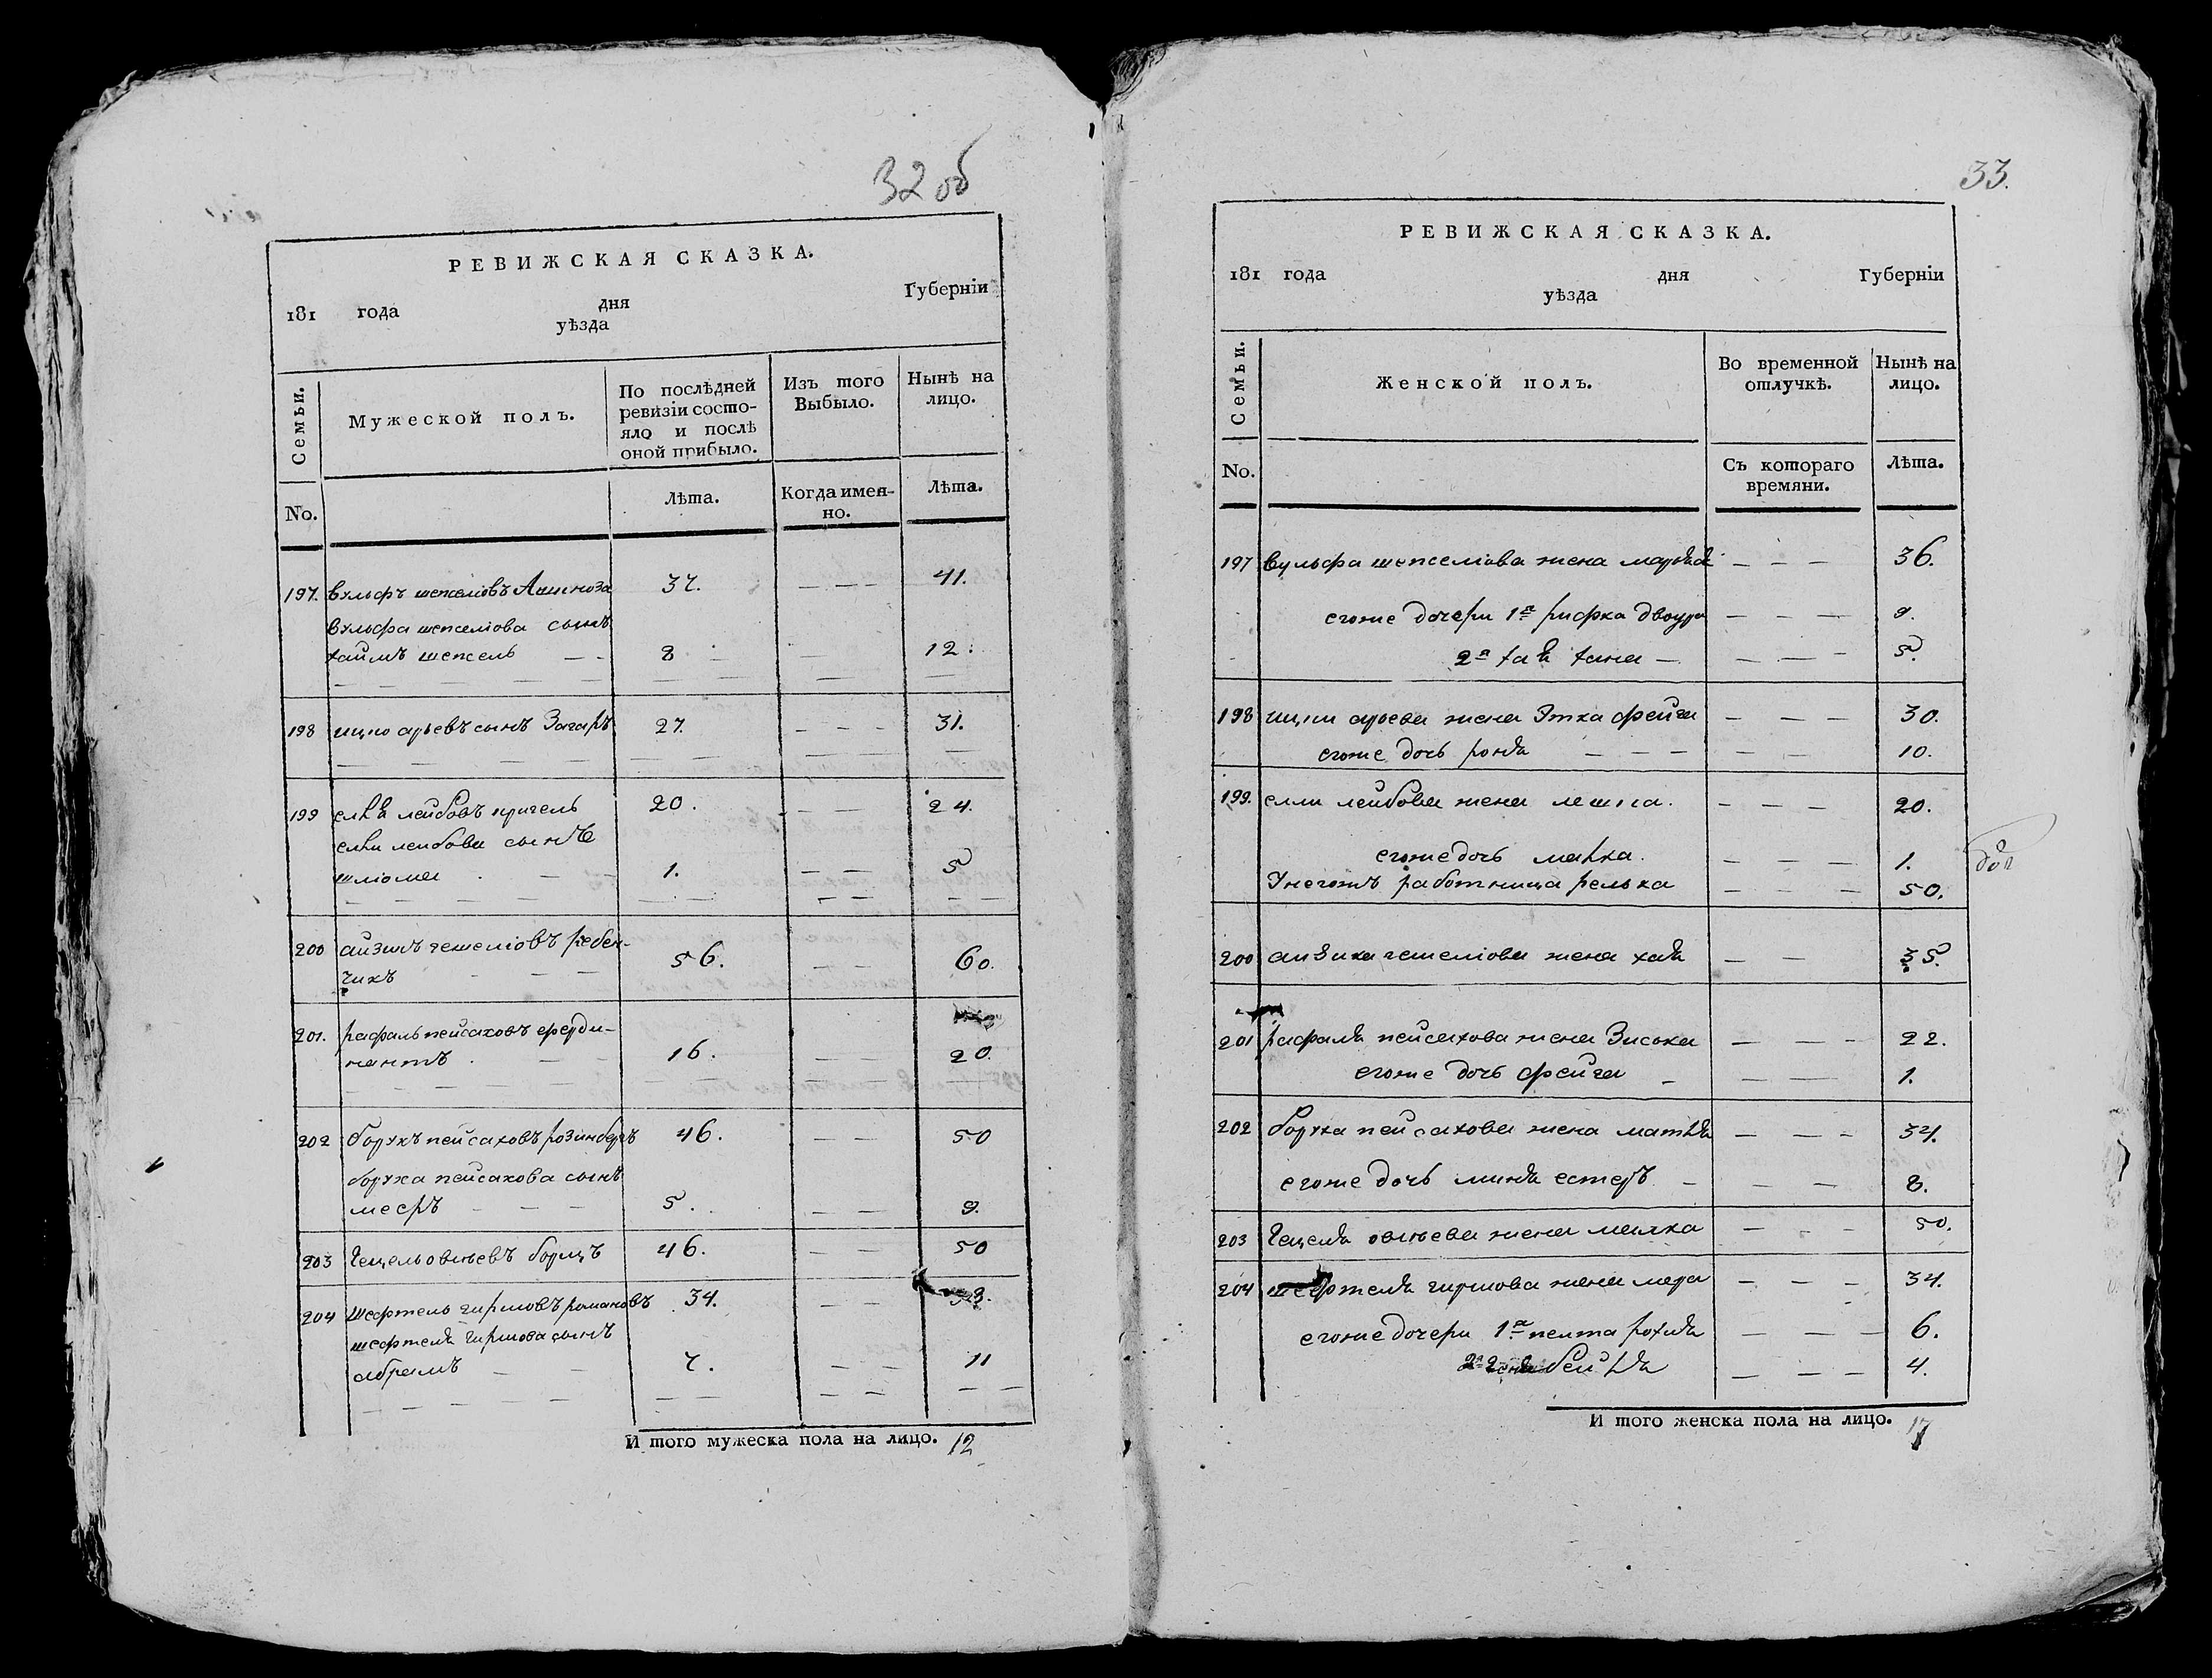 32 об
РЕВИЖСКАЯ СКАЗКА.
181 года дня Губерніи
уѣзда
Семьи.
Мужеской полъ.
По послѣдней ревизіи состояло и послѣ оной прибыло.
Изъ того Выбыло.
Нынѣ на лицо.
No.
Лѣта.
Когда именно.
Лѣта.
197. Вульфъ шепселіовъ 37. — — — 41.
Вульфа шепселіова сынъ
хаимъ шепсель — — 8 — 12.
198 ицко арьевъ сынъ Загаръ 27. — — — 31.
199 лейбовъ 20. — — 24.
лейбова сынъ
шліома 1. — — 5
200 айзикъ гешеліовъ ребен-
чикъ — — — 56. — — 60.
201. рафаль пейсаховъ ферди-
нантъ — — 16. — — 20.
202 борухъ пейсаховъ розинбергъ 46. — — 50
боруха пейсахова сынъ
меєръ — — — 5. — — 9.
203 Гецель овшеевъ борщъ 46. — — 50
204 шефтель гиршовъ романовъ 34. — —
шефтеля гиршова сынъ
абрамъ — — 7. — — 11
И того мужеска пола на лицо. 12
33.
РЕВИЖСКАЯ СКАЗКА.
181 года дня Губерніи
уѣзда
Семьи.
Женской полъ.
Во временной отлучкѣ.
Нынѣ на лицо.
No.
Съ котораго времяни.
Лѣта.
197 Вульфа шепселіова жена — — — 36.
егоже дочери 1я рифка двойра — — — 9.
2я хая хана — — — — 5.
198 ицки арьева жена Этка фейга — — — 30.
егоже дочь — — — — — 10.
199. лейбова жена — — — 20.
егоже дочь — — — 1.
Унегожъ работница релька — — — 50.
доп
200 айзика гешеліова жена хая — — 35.
201 рафаля пейсахова жена Зиська — — — 22.
егоже дочь фейга — — — 1.
202 боруха пейсахова жена — — — 34.
егоже дочь естеръ — — — 8.
203 Гецеля овшеева жена малка — — — 50.
204 шефтеля гиршова жена мера — — — 34.
егоже дочери 1я рохля — — — 6.
2я — — — 4.
И того женска пола на лицо. 17